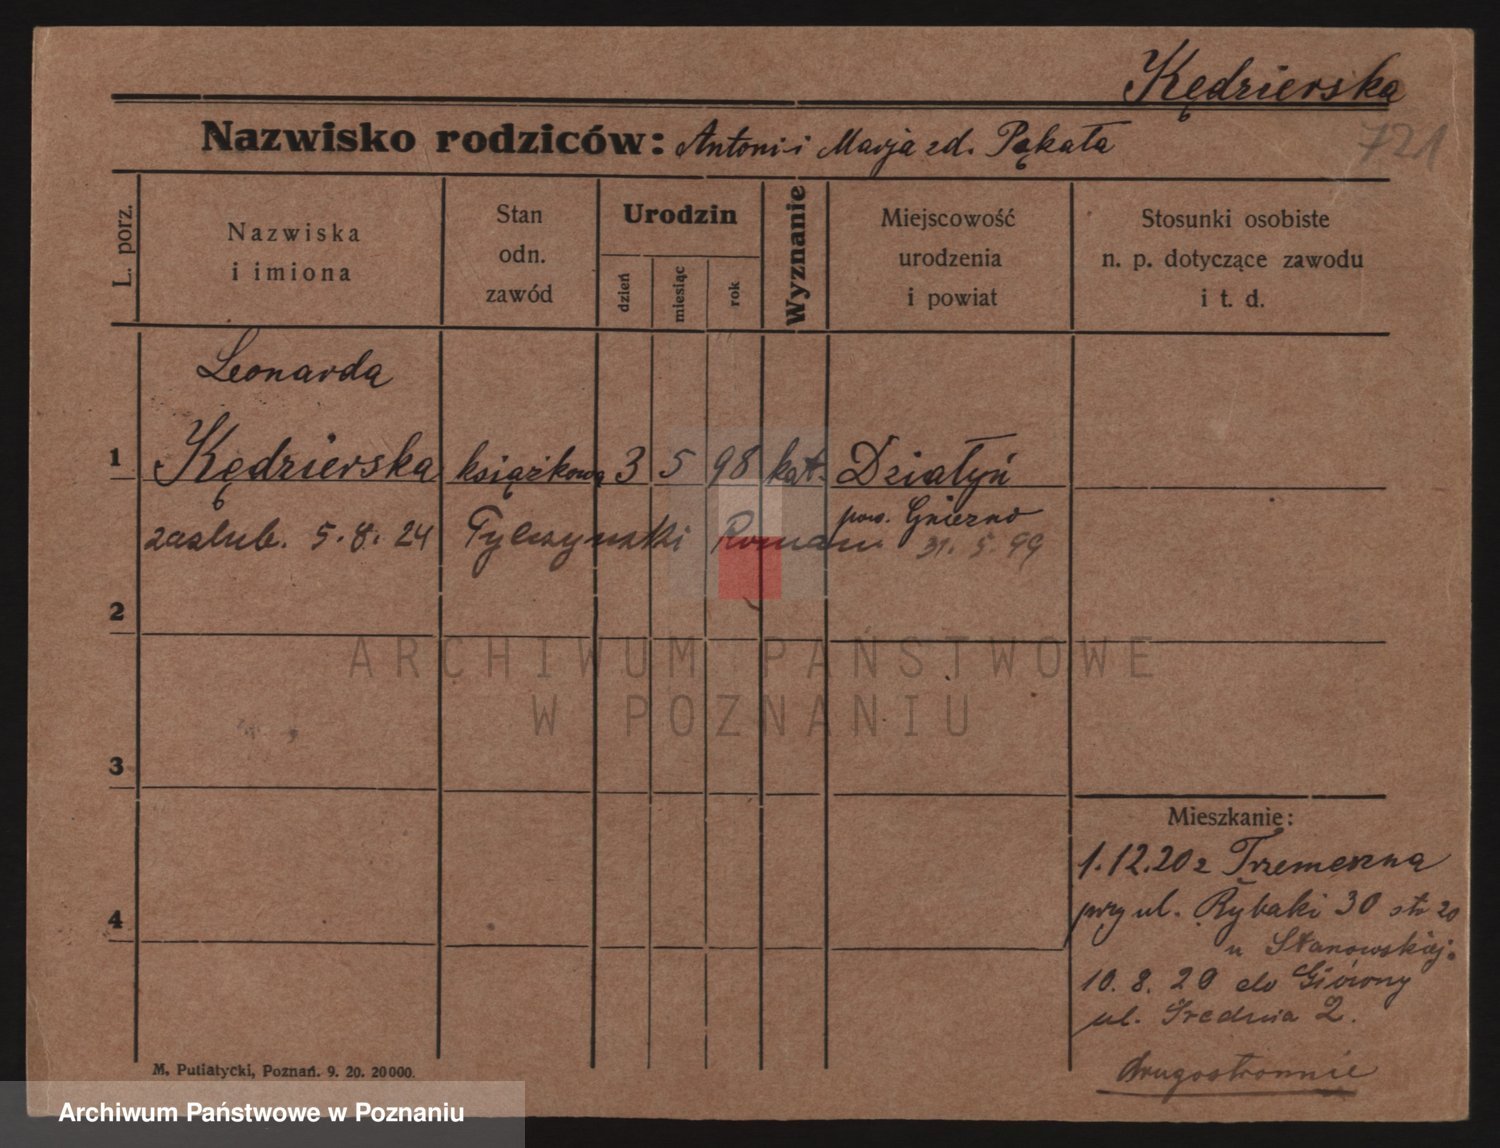 Kędzierska
Nazwisko rodziców: Antoni i Marja zd. Pękała
721
L. porz.
Nazwiska
i imiona
Stan
odn.
zawód
Urodzin
dzień
miesiąc
rok
Wyznanie
Miejscowość
urodzenia
i powiat
Stosunki osobiste
n. p. dotyczące zawodu
i t. d.
Leonarda
1 Kędzierska książkowa 3 5 98 kat. Działyń
pow. Gniezno
zaślub. 5.8.24 Tylczyński Roman 31. 5. 99
2
ARCHIWUM PAŃSTWOWE
W POZNANIU
3
Mieszkanie:
1.12.20 z Trzemeszna
przy ul. Rybaki 30 str 20
u Stanowskiej.
10. 8. 20 do Główny
ul. Średnia 2.
drugostronnie
4
M. Putiatycki, Poznań. 9. 20. 20000.
Archiwum Państwowe w Poznaniu